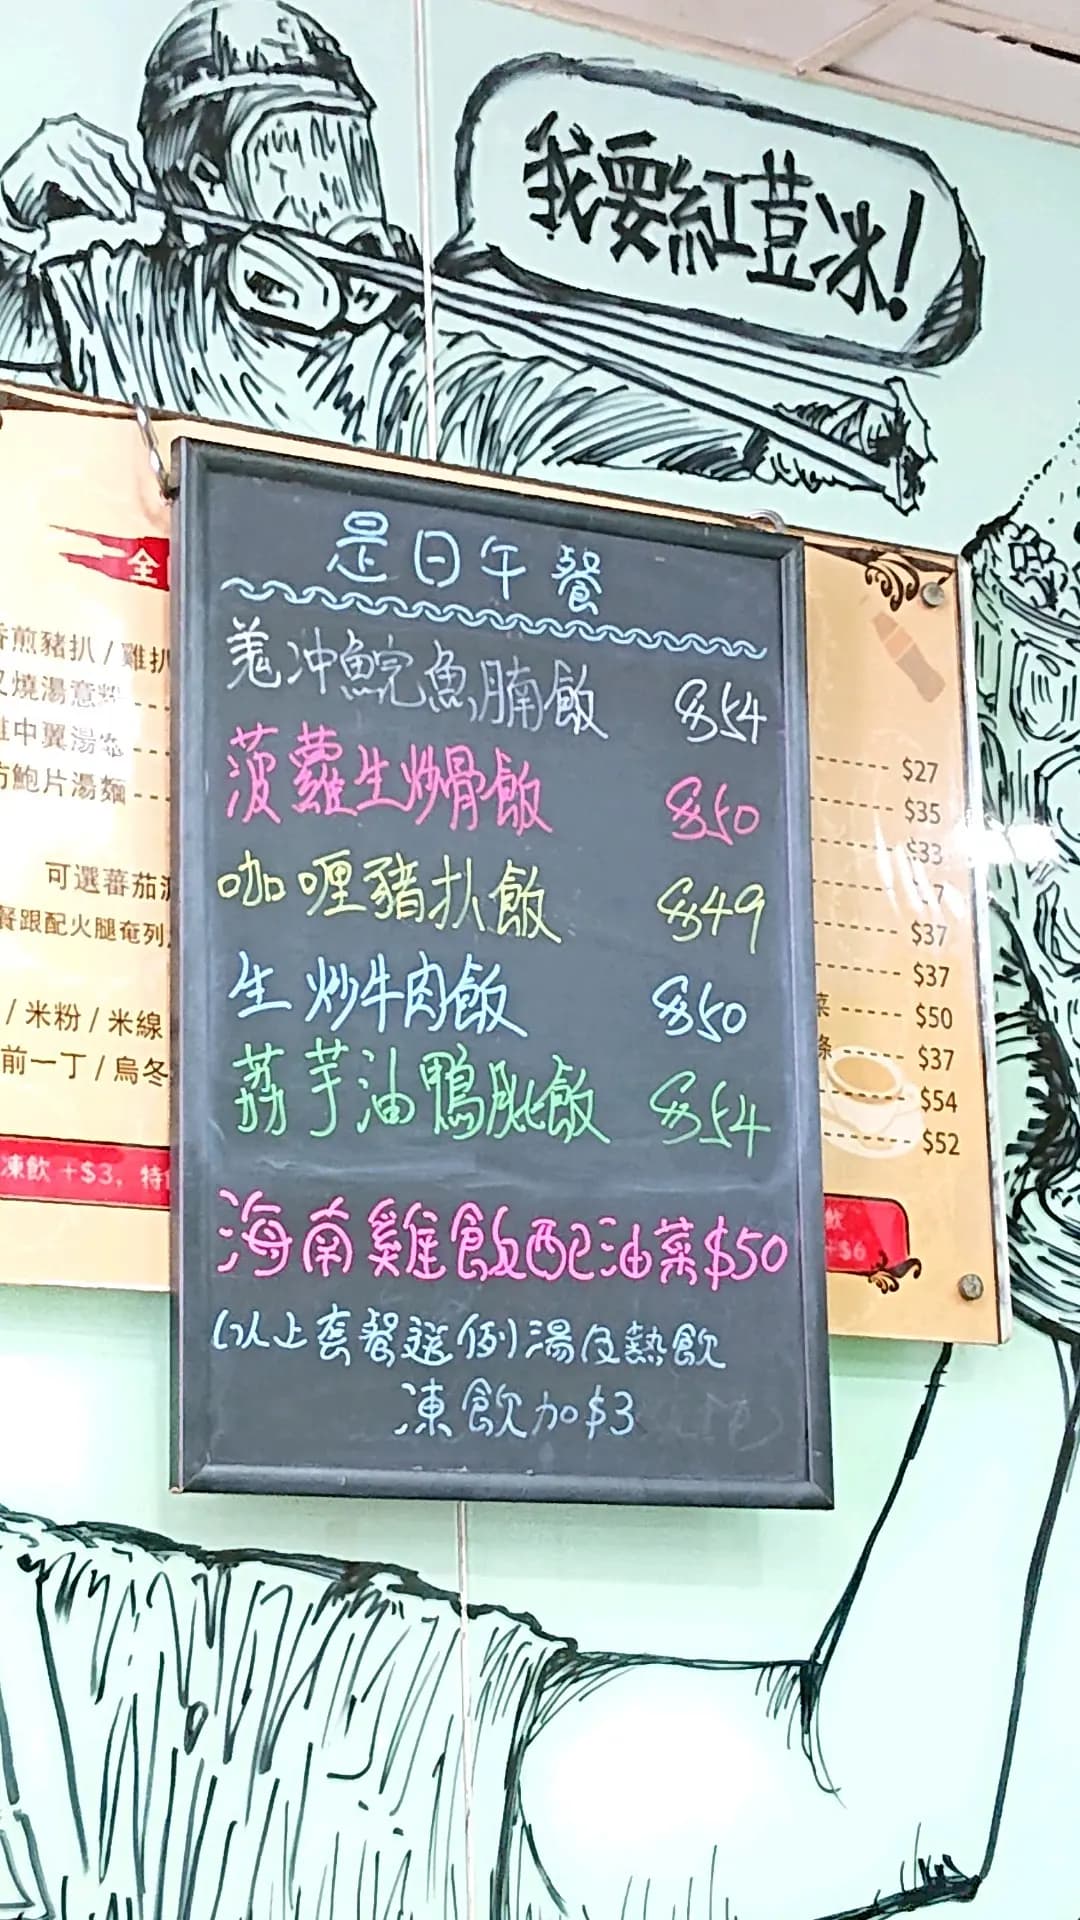 我要紅荳冰!
是日午餐
羗冲鯇魚腩飯 $54
菠蘿生炒骨飯 $50
咖喱豬扒飯 $49
生炒牛肉飯 $50
荔芋油鴨肶飯 $54
海南雞飯配油菜$50
(以上套餐送例)湯及熱飲
凍飲加$3
全
煎豬扒 / 雞扒
燒湯意粉
中翼湯
鮑片湯麵
可選蕃茄湯
餐跟配火腿奄列
/ 米粉 / 米線
前一丁 / 烏冬
凍飲 +$3, 特
$27
$35
$33
$37
$37
菜 $50
條 $37
$54
$52
飲
+$6